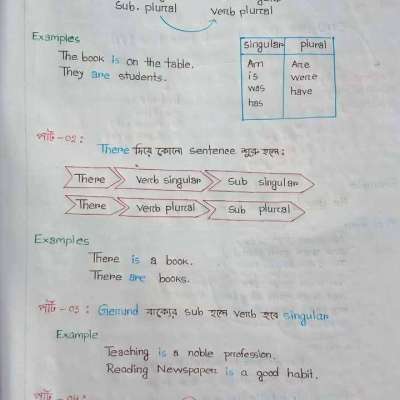 Sub. plural verb plural
Examples
The book is on the table.
They are students.
singular plural
Am Are
is were
was have
has
পার্ট-০২:
There দিয়ে কোনো sentence শুরু হলে:
There verb singular sub singular
There verb plural sub plural
Examples
There is a book.
There are books.
পার্ট-০৩: Gerund বাক্যের sub হলে verb হবে singular
Example
Teaching is a noble profession.
Reading Newspaper is a good habit.